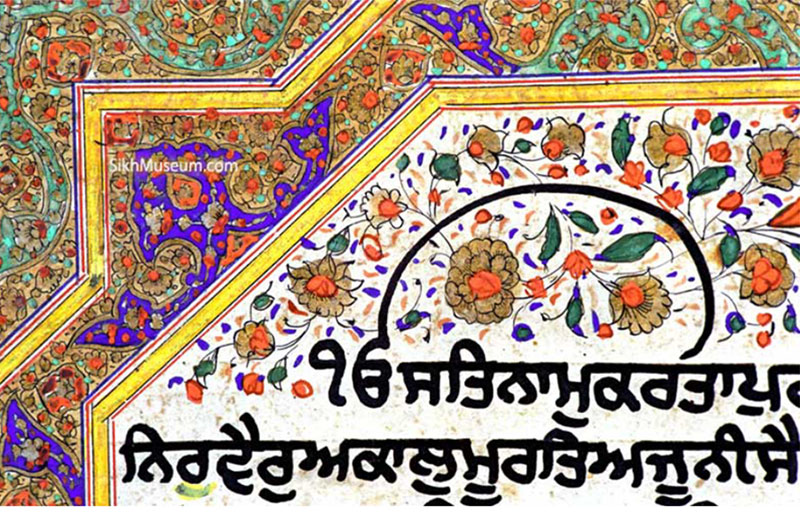 SikhMuseum.com
ੴਸਤਿਨਾਮੁਕਰਤਾਪੁਰ
ਨਿਰਵੈਰੁਅਕਾਲਮੂਰਤਿਅਜੂਨੀਸੈ